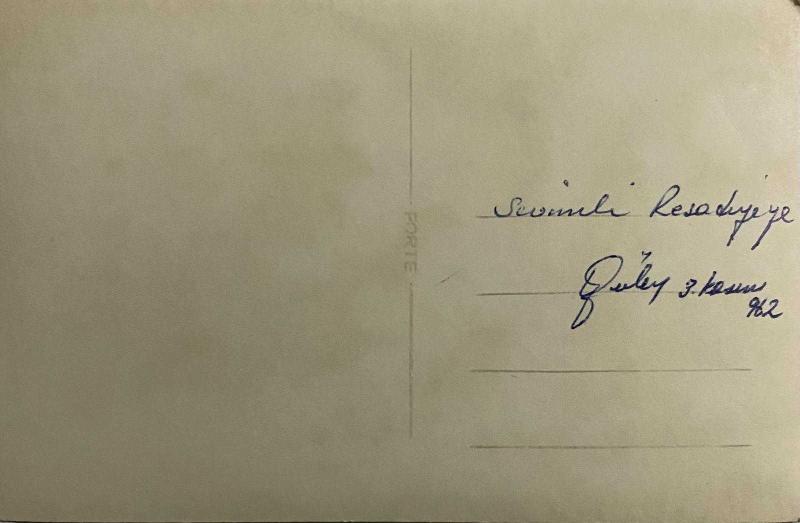 FORTE
Sevimli Resadiyeye
3. Kasım
962